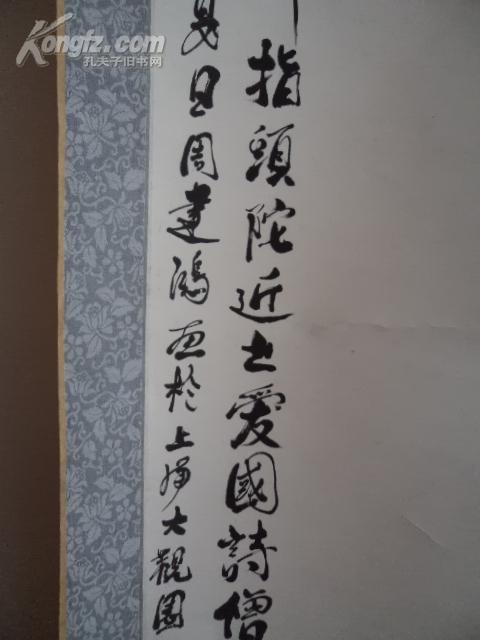 Kongfz.com
孔夫子旧书网
指頭陀近世愛國詩僧
夏日周建鴻画於上海大觀園